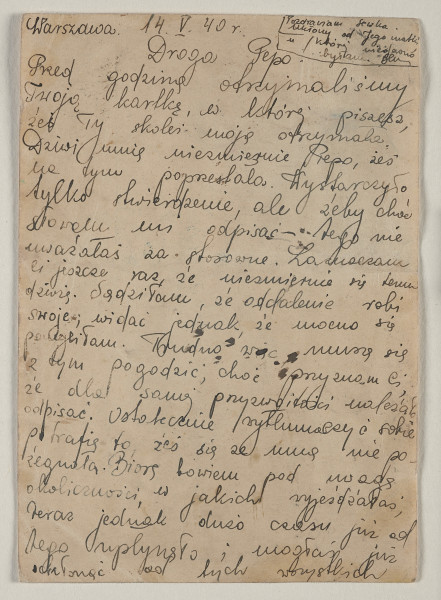 Warszawa. 14. V. 40 r.
Pozdrawiam
od Jego matki
u której
byłam
Droga Pepo.
Przed godziną otrzymaliśmy
Twoją kartkę, w której piszesz,
żeś Ty skoleś moją otrzymała.
Dziwi mnie niezmiernie Pepo, żeś
na tym poprzestała. Wystarczyło
tylko stwierdzenie, ale żeby choć
słowem mi odpisać - tego nie
uważałaś za stosowne. Zaznaczam
Ci jeszcze raz, że niezmiernie się temu
dziwię. Sądziłam, że oddalenie robi
swoje, widać jednak, że mocno się
pomyliłam. Trudno więc, muszę się
z tym pogodzić, choć przyznam Ci,
że dla samej przyzwoitości należało
odpisać. Ostatecznie wytłumaczyć sobie
potrafię to, żeś się ze mną nie po-
żegnała. Biorę bowiem pod uwagę
okoliczności w jakich wyjeżdżałaś,
teraz jednak dużo czasu już od
tego upłynęło i mogłaś już
ochłonąć od tych wszystkich